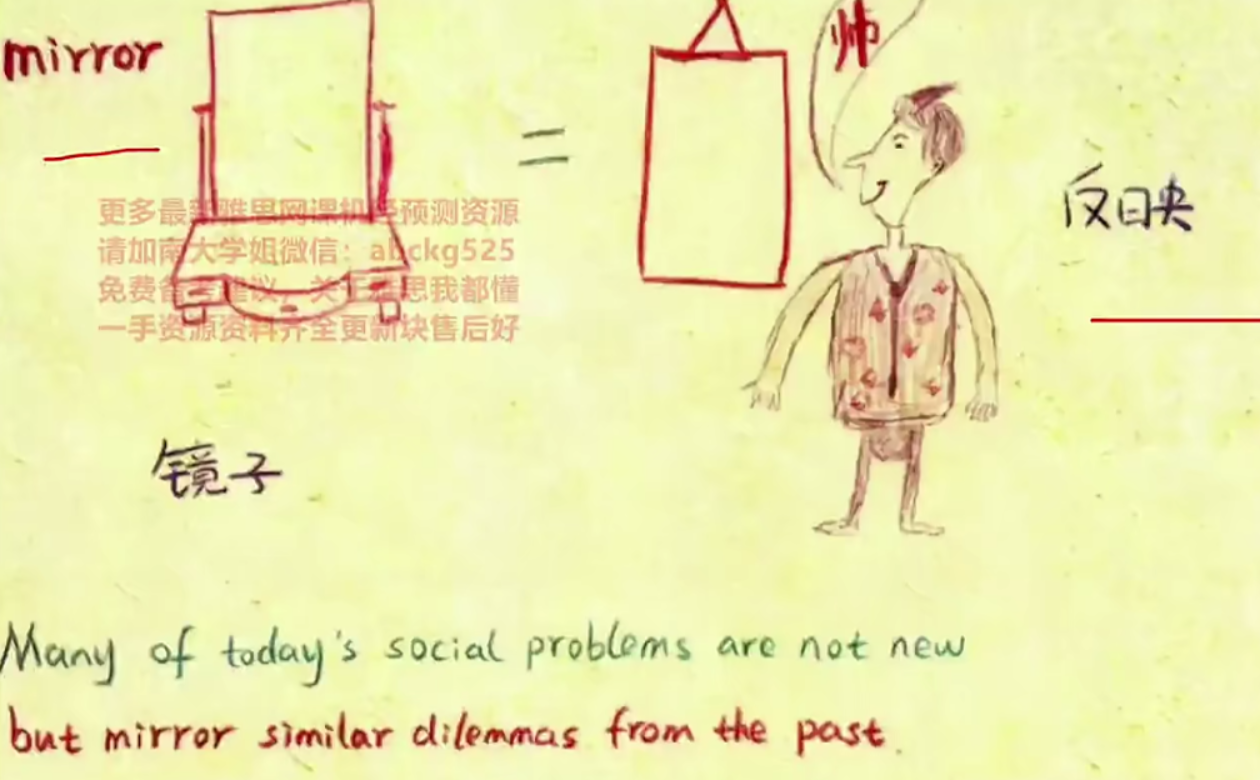 mirror
帅
=
反映
更多最新雅思网课机经预测资源
请加南大学姐微信：abckg525
免费备考建议，关于雅思我都懂
一手资源资料齐全更新块售后好
镜子
Many of today's social problems are not new
but mirror similar dilemmas from the past.